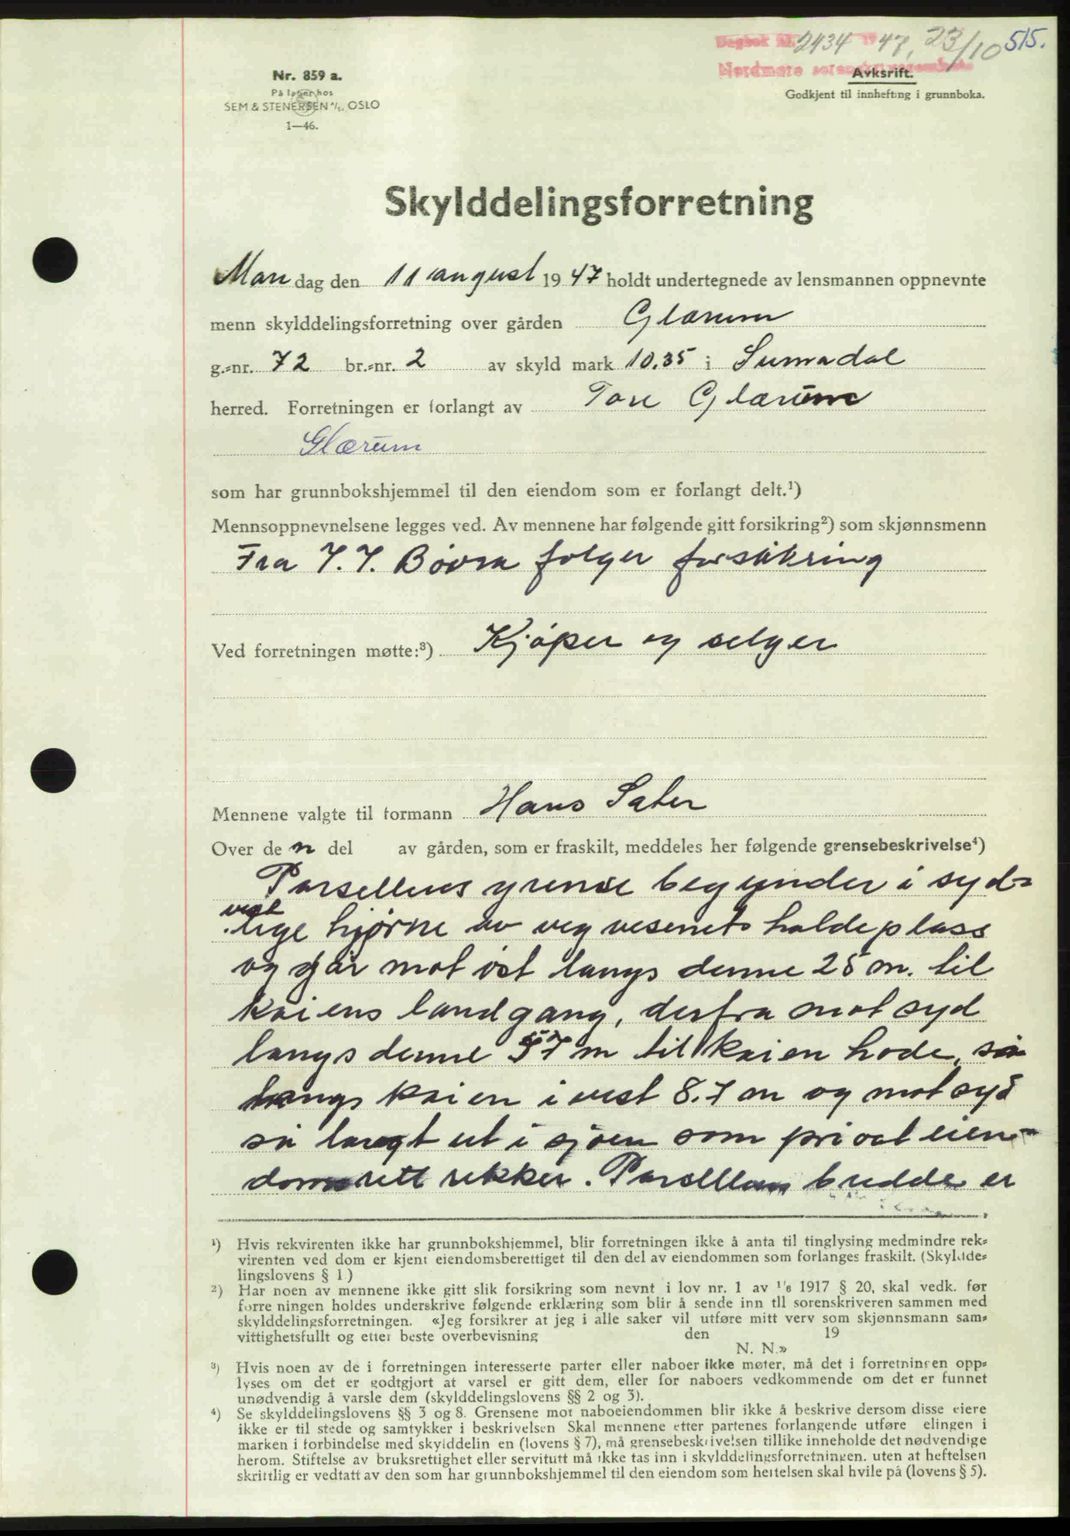 Dagbok nr. 2434 1947, 23/10 515.
Nordmøre sorenskriverembete
Nr. 859 a.
På lager hos
SEM & STENERSEN A/S, OSLO
1—46.
Avkskrift.
Godkjent til innhefting i grunnboka.
Skylddelingsforretning
Mandag den 11 august 1947 holdt undertegnede av lensmannen oppnevnte
menn skylddelingsforretning over gården Glærum
g.-nr. 72 br.-nr. 2 av skyld mark 10.35 i Surnadal
herred. Forretningen er forlangt av Tore Glærum
Glærum
som har grunnbokshjemmel til den eiendom som er forlangt delt.¹)
Mennsoppnevnelsene legges ved. Av mennene har følgende gitt forsikring²) som skjønnsmenn
Fra J. J. Bövra følger forsikring
Ved forretningen møtte:³) Kjøper og selger
Mennene valgte til formann Hans Sæter
Over den del av gården, som er fraskilt, meddeles her følgende grensebeskrivelse⁴)
Parsellens grense begynder i syd-
vest
lige hjørne av vegvesenets holdeplass
og går mot øst langs denne 25 m. til
kaiens landgang, derfra mot syd
langs denne 57 m til kaien hode, så
langs kaien i vest 8.7 m og mot syd
så langt ut i sjøen som privat eien-
domsrett rekker. Parsellens bredde er
¹) Hvis rekvirenten ikke har grunnbokshjemmel, blir forretningen ikke å anta til tinglysing medmindre rek-
virenten ved dom er kjent eiendomsberettiget til den del av eiendommen som forlanges fraskilt. (Skyldde-
lingslovens § 1)
²) Har noen av mennene ikke gitt slik forsikring som nevnt i lov nr. 1 av 1/6 1917 § 20, skal vedk. før
forretningen holdes underskrive følgende erklæring som blir å sende inn til sorenskriveren sammen med
skylddelingsforretningen. «Jeg forsikrer at jeg i alle saker vil utføre mitt verv som skjønnsmann sam-
vittighetsfullt og etter beste overbevisning den 19
N. N.»
³) Hvis noen av de i forretningen interesserte parter eller naboer ikke møter, må det i forretningen opp-
lyses om det er godtgjort at varsel er gitt dem, eller for naboers vedkommende om det er funnet
unødvendig å varsle dem (skylddelingslovens §§ 2 og 3).
⁴) Se skylddelingslovens §§ 3 og 8. Grensene mot naboeiendommen blir ikke å beskrive dersom disse eiere
ikke er til stede og samtykker i beskrivelsen Skal mennene etter partenes forlangende utføre elingen i
marken i forbindelse med skylddelin en (lovens § 7), må grensebeskrivelsen tillike inneholde det nødvendige
herom. Stiftelse av bruksrettighet eller servitutt må ikke tas inn i skylddelingsforretningen. uten at heftelsen
skriftlig er vedtatt av den som har grunnbokshjemmel til den eiendom som heftelsen skal hvile på (lovens § 5).